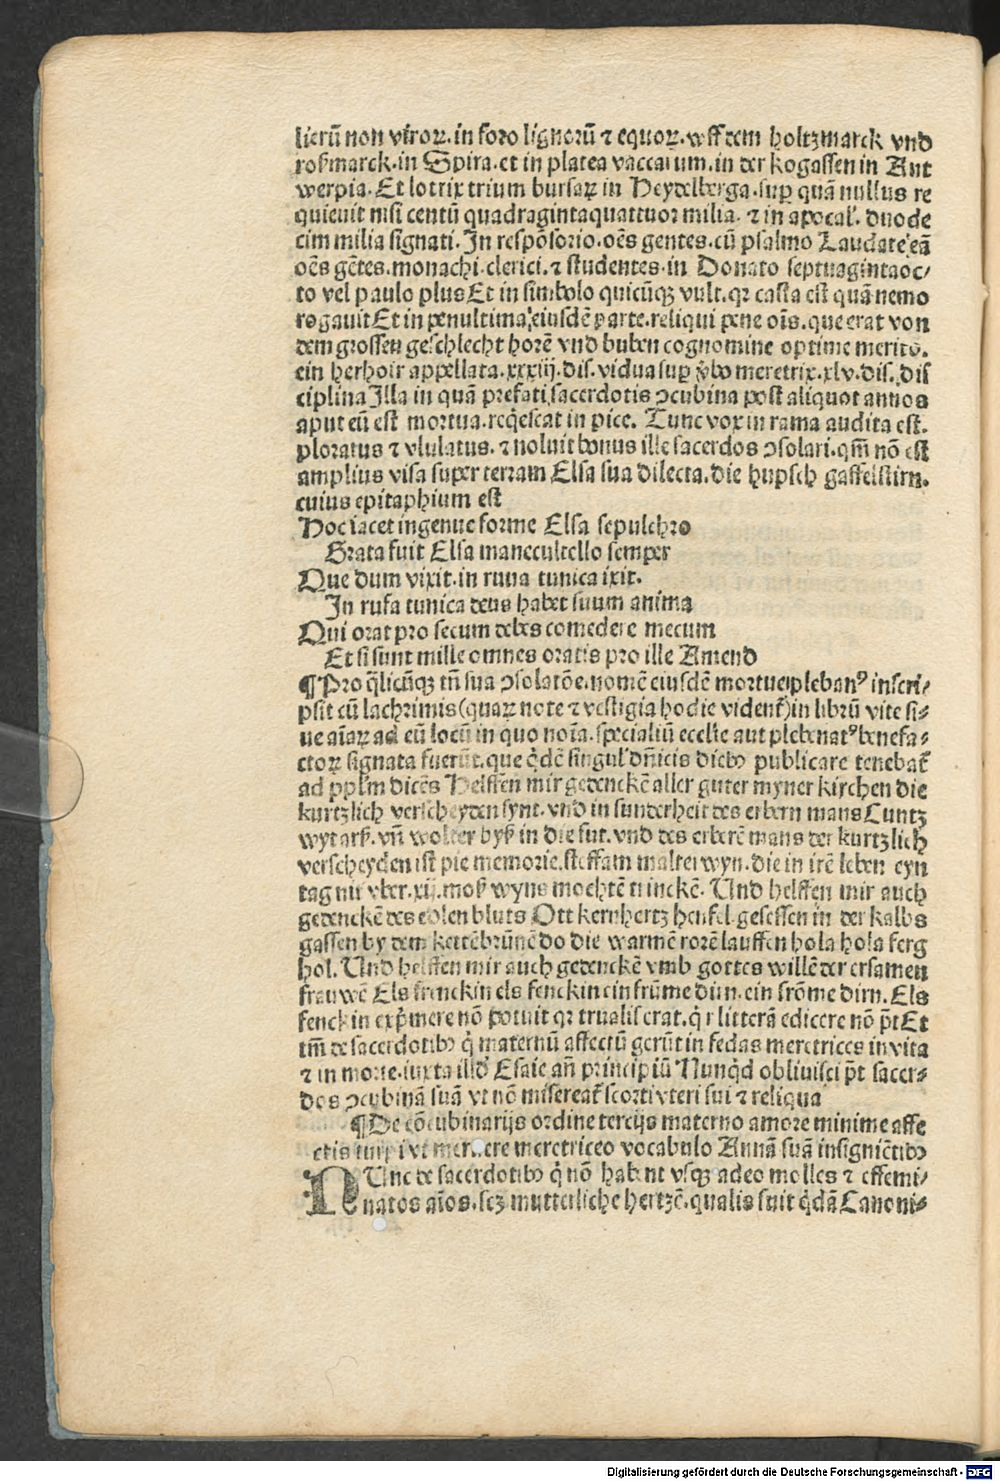 lierū non viroꝝ. in foro lignorū ⁊ equoꝝ. vff dem holtzmarck vnd
roßmarck. in Spira. et in platea vaccarum. in der kogassen in Ant
werpia. Et lotrix trium bursaꝝ in Heydelberga. sup̱ quā nullus re
quieuit nisi centū quadragintaquattuor milia. ⁊ in apocal'. duode
cim milia signati. In respōsorio. oēs gentes. cū psalmo Laudate eā
oēs gētes. monachi. clerici. ⁊ studentes. in Donato septuagintaoc/
to vel paulo plus Et in simbolo quicūqꝫ vult. qꝛ casta est quā nemo
rogauit Et in penultima eiusdē parte. reliqui pene oīs. que erat von
dem grossen geschlecht horē vnd buben cognomine optime meritō.
ein herhoir appellata. xxxiij. dis. vidua sup̱ v̄bo meretrix. xlv. dis. dis
ciplina Illa in quā prefati sacerdotis ꝯcubina post aliquot annos
aput eū est mortua. reqͥescat in pice. Tunc vox in rama audita est.
ploratus ⁊ vlulatus. ⁊ noluit bonus ille sacerdos ꝯsolari. qm̄ nō est
amplius visa super terram Elsa sua dilecta. die hupsch gaffelstirn.
cuius epitaphium est
Hoc iacet ingenue forme Elsa sepulchro
Grata fuit Elsa manecultello semper
Que dum vixit. in rufa tunica ixit.
In rufa tunica deus habet suum anima
Qui orat pro secum debes comedere mecum
Et si sunt mille omnes oratis pro ille Amend
¶ Pro qͥlicūqꝫ tn̄ sua ꝯsolatōe. nomē eiusdē mortue plebanꝰ inscri/
psit cū lachrimis (quaꝝ note ⁊ vestigia hodie vident᷑) in librū vite si⸗
ue aīaꝝ ad eū locū in quo noīa. specialiū ecclie aut plebenatꝰ benefa⸗
ctoꝝ signata fuerūt. que qͥdē singul' dn̄icis diebꝰ publicare tenebat᷑
ad pplm̄ dicēs Helffen mir gedenckē aller guter myner kirchen die
kurtzlich verscheyden synt. vnd in sunderheit des erbern mans Cuntz
wytarß. vn̄ wolter byß in die sut. vnd des erberē mans der kurtzlich
verscheyden ist pie memorie. steffam malterwyn. die in irē leben eyn
tag nit vber. xij. moß wyns mochtē trinckē. Und helffen mir auch
gedenckē des edlen bluts Ott kernhertz hensel gesessen in der kalbs
gassen by dem kettēbrūnē do die warmē rorē lauffen hola hola ferg
hol. Und helffen mir auch gedenckē vmb gottes willē der ersamen
frauwē Els frenckin els fenckin ein frūme dirn. ein frōme dirn. Els
fenckin exp̱mere nō potuit qꝛ trualis erat. qͥ r litterā edicere nō pt̄ Et
tm̄ de sacerdotibꝰ qͥ maternū affectū gerūt in fedas meretrices in vita
⁊ in morte. iuxta illd̓ Esaie an̄ principiū Nunqͥd obliuisci pt̄ sacer⸗
dos ꝯcubinā suā vt nō misereat᷑ scorti vteri sui ⁊ reliqua
¶ De cōcubinarijs ordine tercijs materno amore minime affe
ctis turpi vt meruere meretriceo vocabulo Annā suā insigniētibꝰ
NUnc de sacerdotibꝰ qͥ nō habent vsqꝫ adeo molles ⁊ effemi/
natos aīos. scꝫ mutterliche hertzē. qualis fuit qͥdā Canoni⸗
Digitalisierung gefördert durch die Deutsche Forschungsgemeinschaft - DFG